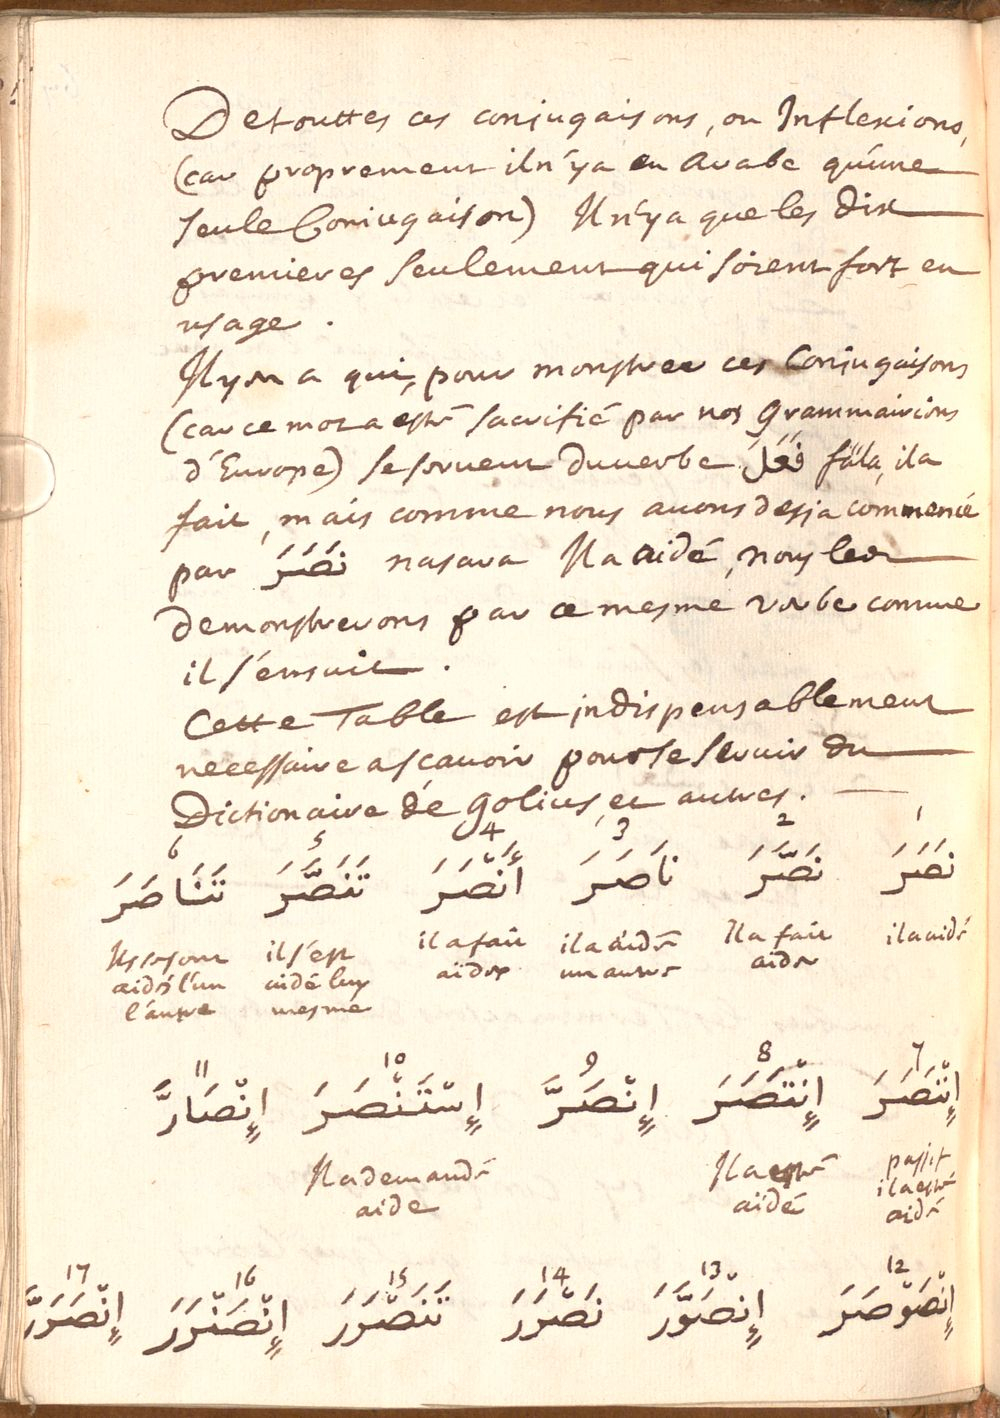 De touttes ces conjugaisons, ou Inflexions,
(car proprement il n'y a en Arabe qu'une
seule Coniugaison) Il n'y a que les dix
premieres seulement qui soient fort en
usage .
Il y en a qui, pour monstrer ces Conjugaisons
(car ce mot a esté sacrifié par nos Grammairiens
d'Europe) se seruent du uerbe فَعَلَ fäla, il a
fait, mais comme nous auons desja commencé
par نَصَرَ nasara Il a aidé, nous les
demonstrerons par ce mesme verbe comme
il s'ensuit .
Cette Table est indispensablement
necessaire a scauoir pour se seruir du
Dictionaire de Golius, et autres.
1 2 3 4 5 6
نَصَرَ نَصَّرَ نَاصَرَ أَنْصَرَ تَنَصَّرَ تَنَاصَرَ
il a aidé
Il a fait
aider
il a aidé
un autre
il a fait
aider
il s'est
aidé luy
mesme
Ils se sont
aidé l'un
l'autre
7 8 9 10 11
إِنْنَصَرَ إِنْتَصَرَ إِنْصَرَّ إِسْتَنْصَرَ إِنْصَارَّ
passif
il a esté
aidé
Il a esté
aidé
Il a demandé
aide
12 13 14 15 16 17
إِنْصَوْصَرَ إِنْصَوَّرَ نَصْرَرَ تَنَصْرَرَ إِنْصَنْرَرَ إِنْصَرَرَّ